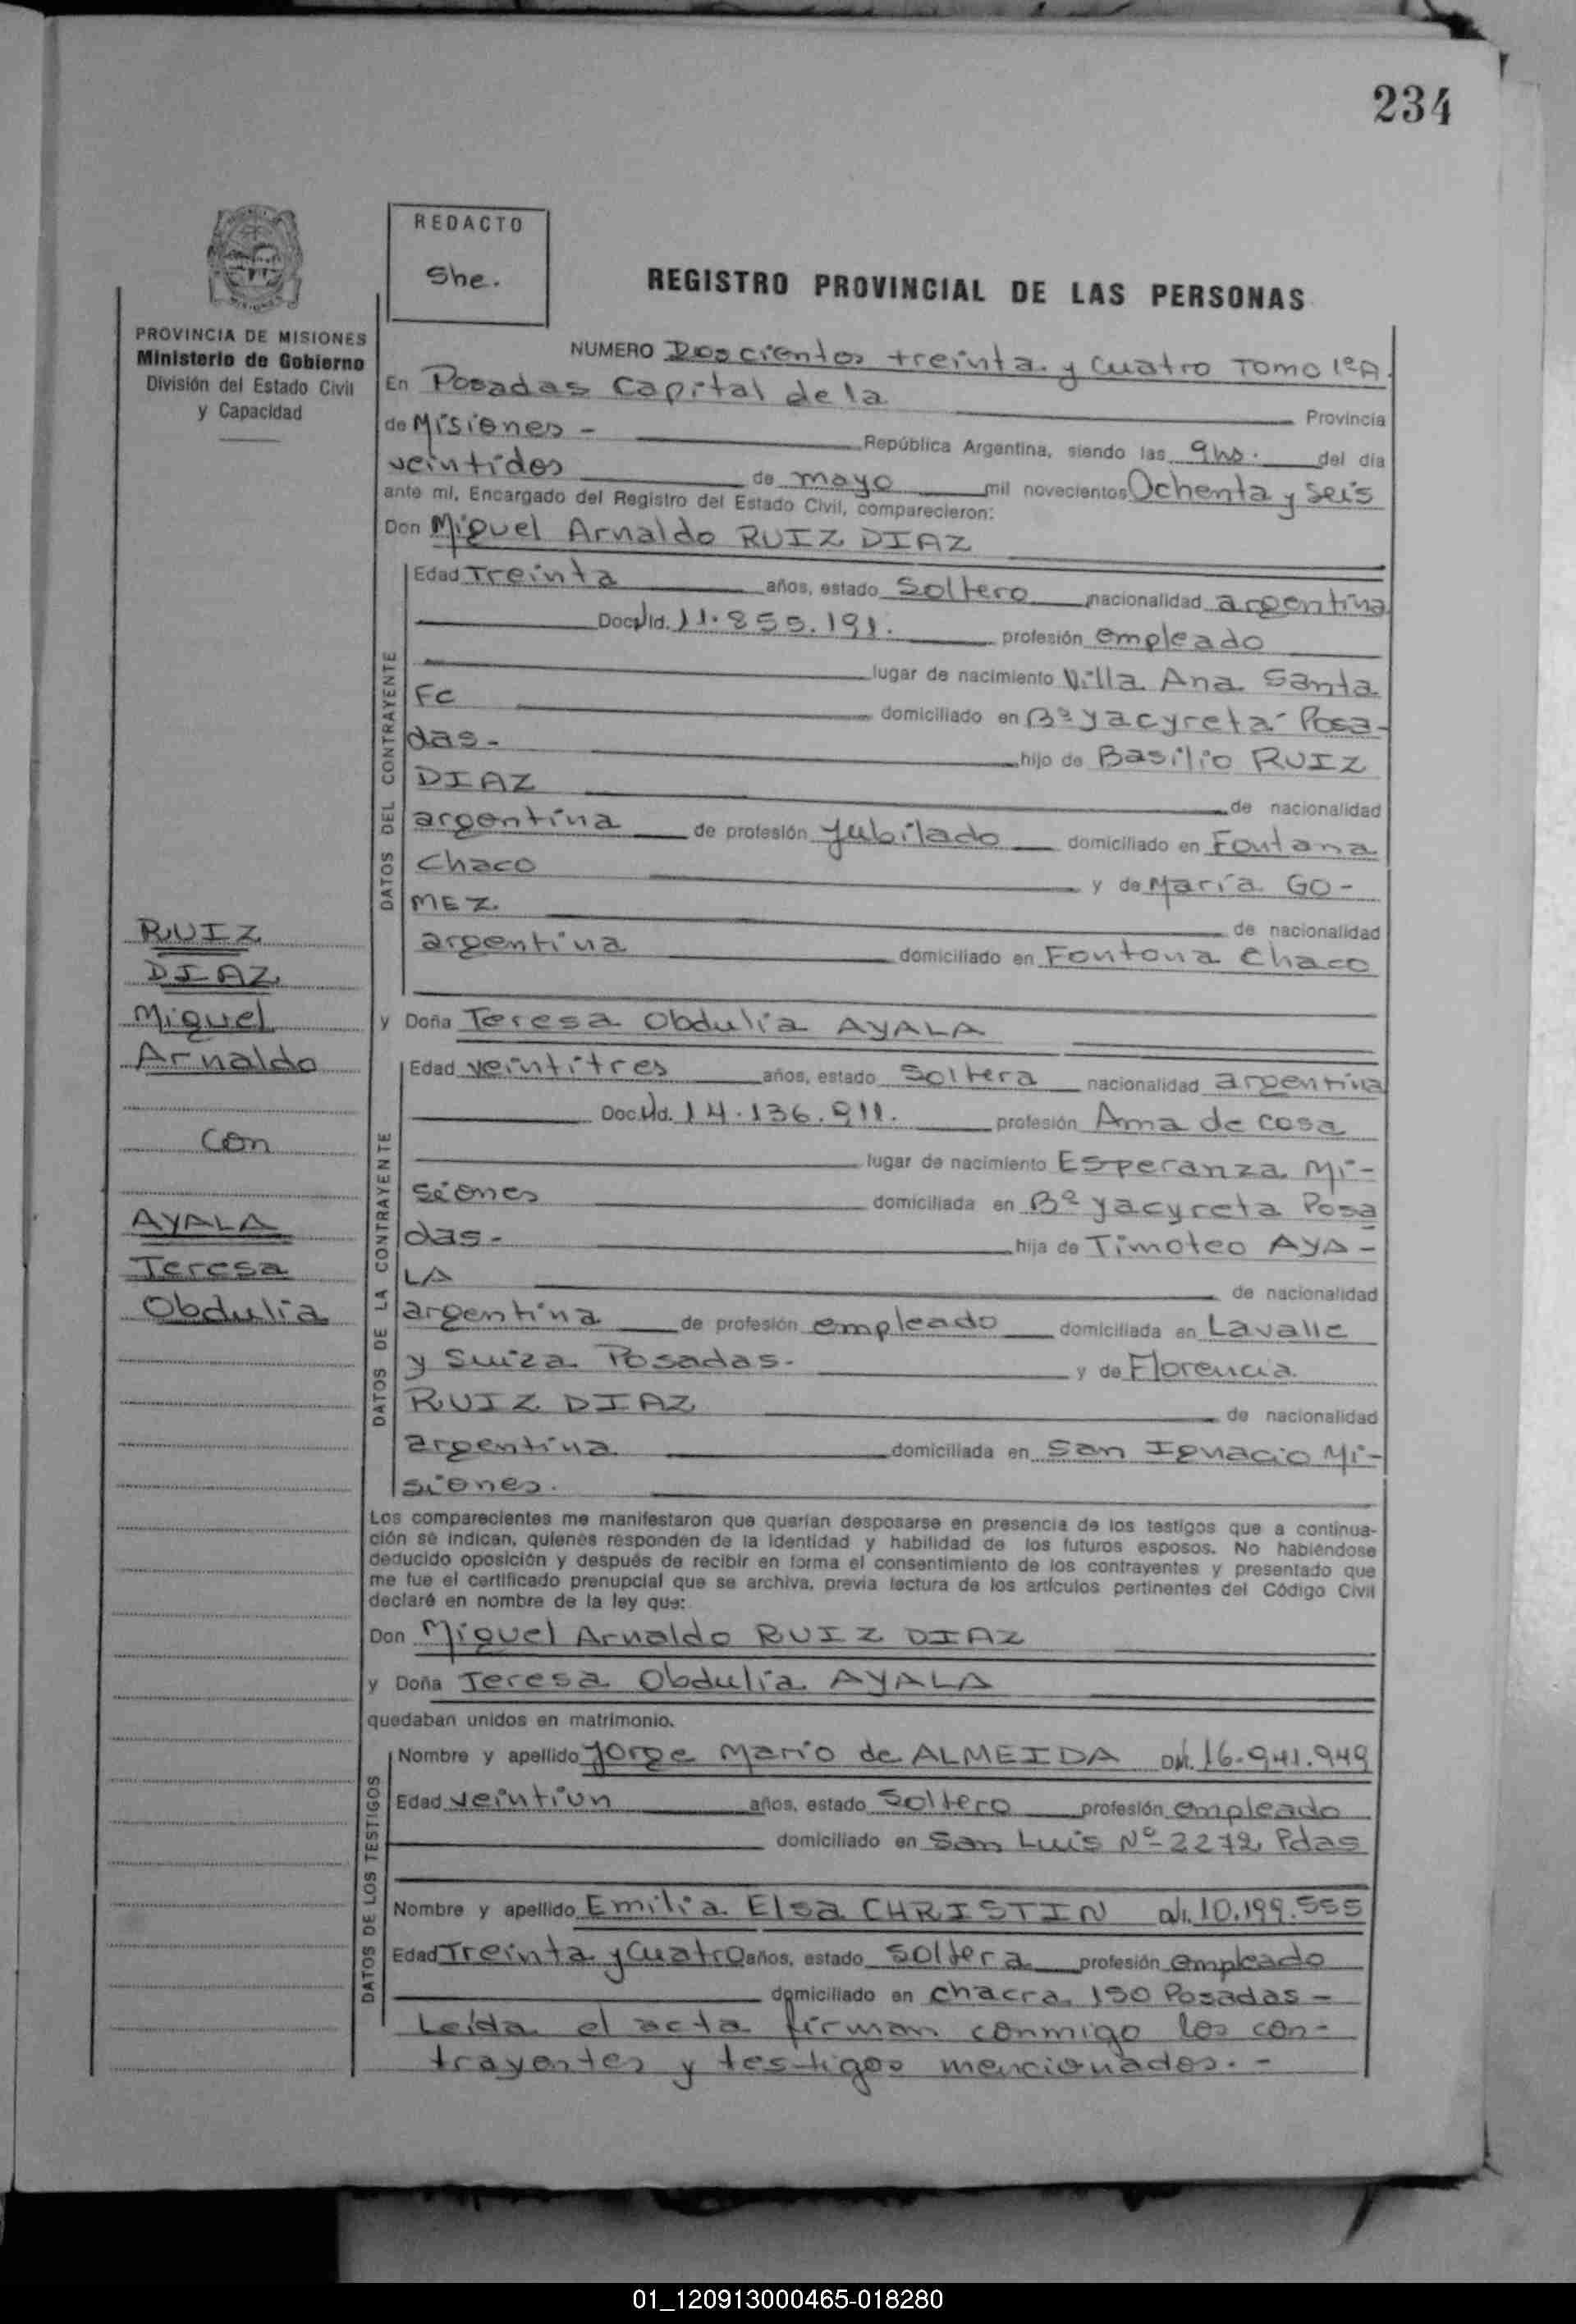 234
REDACTO
She.
REGISTRO PROVINCIAL DE LAS PERSONAS
PROVINCIA DE MISIONES
Ministerio de Gobierno
División del Estado Civil
y Capacidad
NUMERO Doscientos treinta y cuatro Tomo 1º A.
En Posadas Capital de la Provincia
de Misiones - República Argentina, siendo las 9hs. del día
veintidos de mayo mil novecientos Ochenta y seis
ante mí, Encargado del Registro del Estado Civil, comparecieron:
Don Miguel Arnaldo RUIZ DIAZ
DATOS DEL CONTRAYENTE
Edad Treinta años, estado Soltero nacionalidad argentina
Doc. Id. 11.855.191. profesión empleado
lugar de nacimiento Villa Ana Santa
Fe domiciliado en Bº yacyreta Posa-
das- hijo de Basilio RUIZ
DIAZ de nacionalidad
argentina de profesión Jubilado domiciliado en Fontana
Chaco y de María GO-
MEZ de nacionalidad
argentina domiciliado en Fontana Chaco
y Doña Teresa Obdulia AYALA
DATOS DE LA CONTRAYENTE
Edad veintitres años, estado Soltera nacionalidad argentina
Doc. Id. 14.136.911. profesión Ama de casa
lugar de nacimiento Esperanza Mi-
siones domiciliada en Bº yacyreta Posa
das- hija de Timoteo AYA-
LA de nacionalidad
argentina de profesión empleado domiciliada en Lavalle
y Suiza Posadas- y de Florencia
RUIZ DIAZ de nacionalidad
argentina domiciliada en San Ignacio Mi-
siones.
RUIZ
DIAZ
Miguel
Arnaldo
con
AYALA
Teresa
Obdulia
Los comparecientes me manifestaron que querían desposarse en presencia de los testigos que a continua-
ción se indican, quienes responden de la identidad y habilidad de los futuros esposos. No habiéndose
deducido oposición y después de recibir en forma el consentimiento de los contrayentes y presentado que
me fue el certificado prenupcial que se archiva, previa lectura de los artículos pertinentes del Código Civil
declaré en nombre de la ley que:
Don Miguel Arnaldo RUIZ DIAZ
y Doña Teresa Obdulia AYALA
quedaban unidos en matrimonio.
DATOS DE LOS TESTIGOS
Nombre y apellido Jorge Mario de ALMEIDA DNI. 16.941.949
Edad veintiun años, estado Soltero profesión empleado
domiciliado en San Luis Nº 2272 Pdas
Nombre y apellido Emilia Elsa CHRISTIN 10.199.555
Edad Treinta y cuatro años, estado soltera profesión empleado
domiciliado en chacra 150 Posadas-
Leída el acta firman conmigo los con-
trayentes y testigos mencionados.-
01_120913000465-018280